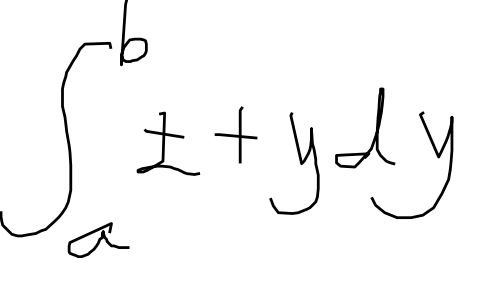 ∫_a^b ± + y dy